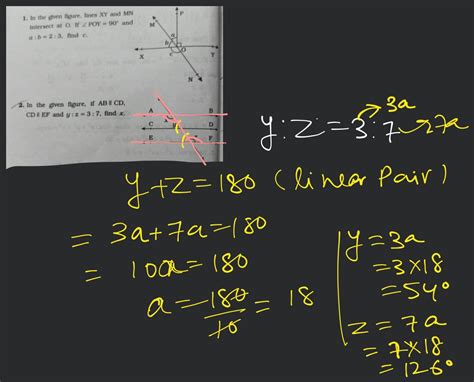 1. In the given figure, lines XY and MN
intersect at O. If ∠POY = 90° and
a : b = 2 : 3, find c.
P
M
a
b
c
O
X
Y
N
2. In the given figure, if AB ∥ CD,
CD ∥ EF and y : z = 3 : 7, find x.
A
B
C
D
E
F
y : z = 3 : 7
3a
7a
y+z=180 (linear Pair)
= 3a+7a=180
= 10a=180
a=180/10=18
y=3a
=3×18
=54°
z=7a
=7×18
=126°